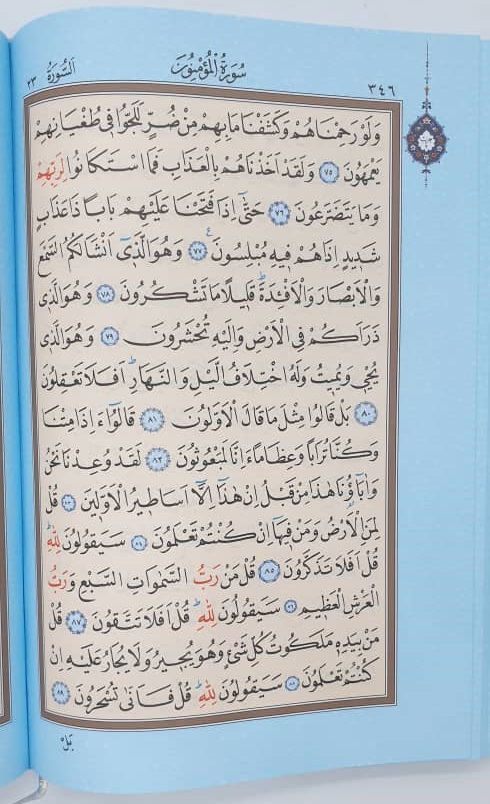 ٣٤٦ سُورَةُ الْمُؤْمِنُونَ اَلسُّورَةُ ٢٣
وَلَوْ رَحِمْنَاهُمْ وَكَشَفْنَا مَا بِهِمْ مِنْ ضُرٍّ لَلَجُّوا فِى طُغْيَانِهِمْ
يَعْمَهُونَ ٧٥ وَلَقَدْ اَخَذْنَاهُمْ بِالْعَذَابِ فَمَا اسْتَكَانُوا لِرَبِّهِمْ
وَمَا يَتَضَرَّعُونَ ٧٦ حَتّٰٓى اِذَا فَتَحْنَا عَلَيْهِمْ بَابًا ذَا عَذَابٍ
شَدِيدٍ اِذَا هُمْ فِيهِ مُبْلِسُونَ ٧٧ وَهُوَ الَّذٓى اَنْشَاَ لَكُمُ السَّمْعَ
وَالْاَبْصَارَ وَالْاَفْئِدَةَ قَلِيلًا مَا تَشْكُرُونَ ٧٨ وَهُوَ الَّذِى
ذَرَاَكُمْ فِى الْاَرْضِ وَاِلَيْهِ تُحْشَرُونَ ٧٩ وَهُوَ الَّذِى
يُحْيِى وَيُمِيتُ وَلَهُ اخْتِلَافُ الَّيْلِ وَالنَّهَارِ اَفَلَا تَعْقِلُونَ
٨٠ بَلْ قَالُوا مِثْلَ مَا قَالَ الْاَوَّلُونَ ٨١ قَالُٓوا ءَاِذَا مِتْنَا
وَكُنَّا تُرَابًا وَعِظَامًا ءَاِنَّا لَمَبْعُوثُونَ ٨٢ لَقَدْ وُعِدْنَا نَحْنُ
وَاٰبَٓاؤُنَا هٰذَا مِنْ قَبْلُ اِنْ هٰذَٓا اِلَّٓا اَسَاطِيرُ الْاَوَّلِينَ ٨٣ قُلْ
لِمَنِ الْاَرْضُ وَمَنْ فِيهَٓا اِنْ كُنْتُمْ تَعْلَمُونَ ٨٤ سَيَقُولُونَ لِلّٰهِ
قُلْ اَفَلَا تَذَكَّرُونَ ٨٥ قُلْ مَنْ رَبُّ السَّمٰوَاتِ السَّبْعِ وَرَبُّ
الْعَرْشِ الْعَظِيمِ ٨٦ سَيَقُولُونَ لِلّٰهِ قُلْ اَفَلَا تَتَّقُونَ ٨٧ قُلْ
مَنْ بِيَدِهِ مَلَكُوتُ كُلِّ شَىْءٍ وَهُوَ يُجِيرُ وَلَا يُجَارُ عَلَيْهِ اِنْ
كُنْتُمْ تَعْلَمُونَ ٨٨ سَيَقُولُونَ لِلّٰهِ قُلْ فَاَنّٰى تُسْحَرُونَ ٨٩
بَلْ